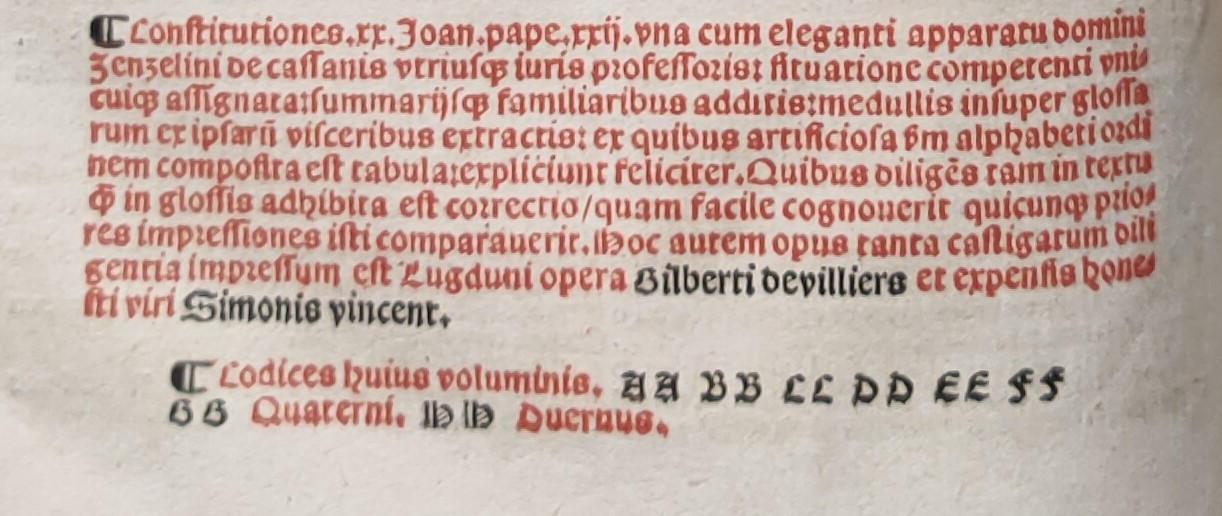 ¶ Conſtitutiones.xx.Joan.pape.xxij.vna cum eleganti apparatu domini
Zenzelini de caſſanis vtriuſqꝫ iuris pꝛofeſſoꝛis: ſituatione competenti vni⸗
cuiqꝫ aſſignata:ſummarijſqꝫ familiaribus additis:medullis inſuper gloſſa
rum ex ipſarū viſceribus extractis: ex quibus artificioſa ẜm alphabeti oꝛdi
nem compoſita eſt tabula:expliciunt feliciter.Quibus diligēs tam in textu
ꝙ̄ in gloſſis adhibita eſt coꝛrectio/quam facile cognouerit quicunqꝫ pꝛio⸗
res impꝛeſſiones iſti comparauerit.Hoc autem opus tanta caſtigatum dili
gentia impꝛeſſum eſt Lugduni opera Gilberti devilliers et expenſis hone⸗
ſti viri Simonis vincent.
¶ Codices huius voluminis. AA BB CC DD EE FF
GG Quaterni. HH Duernus.